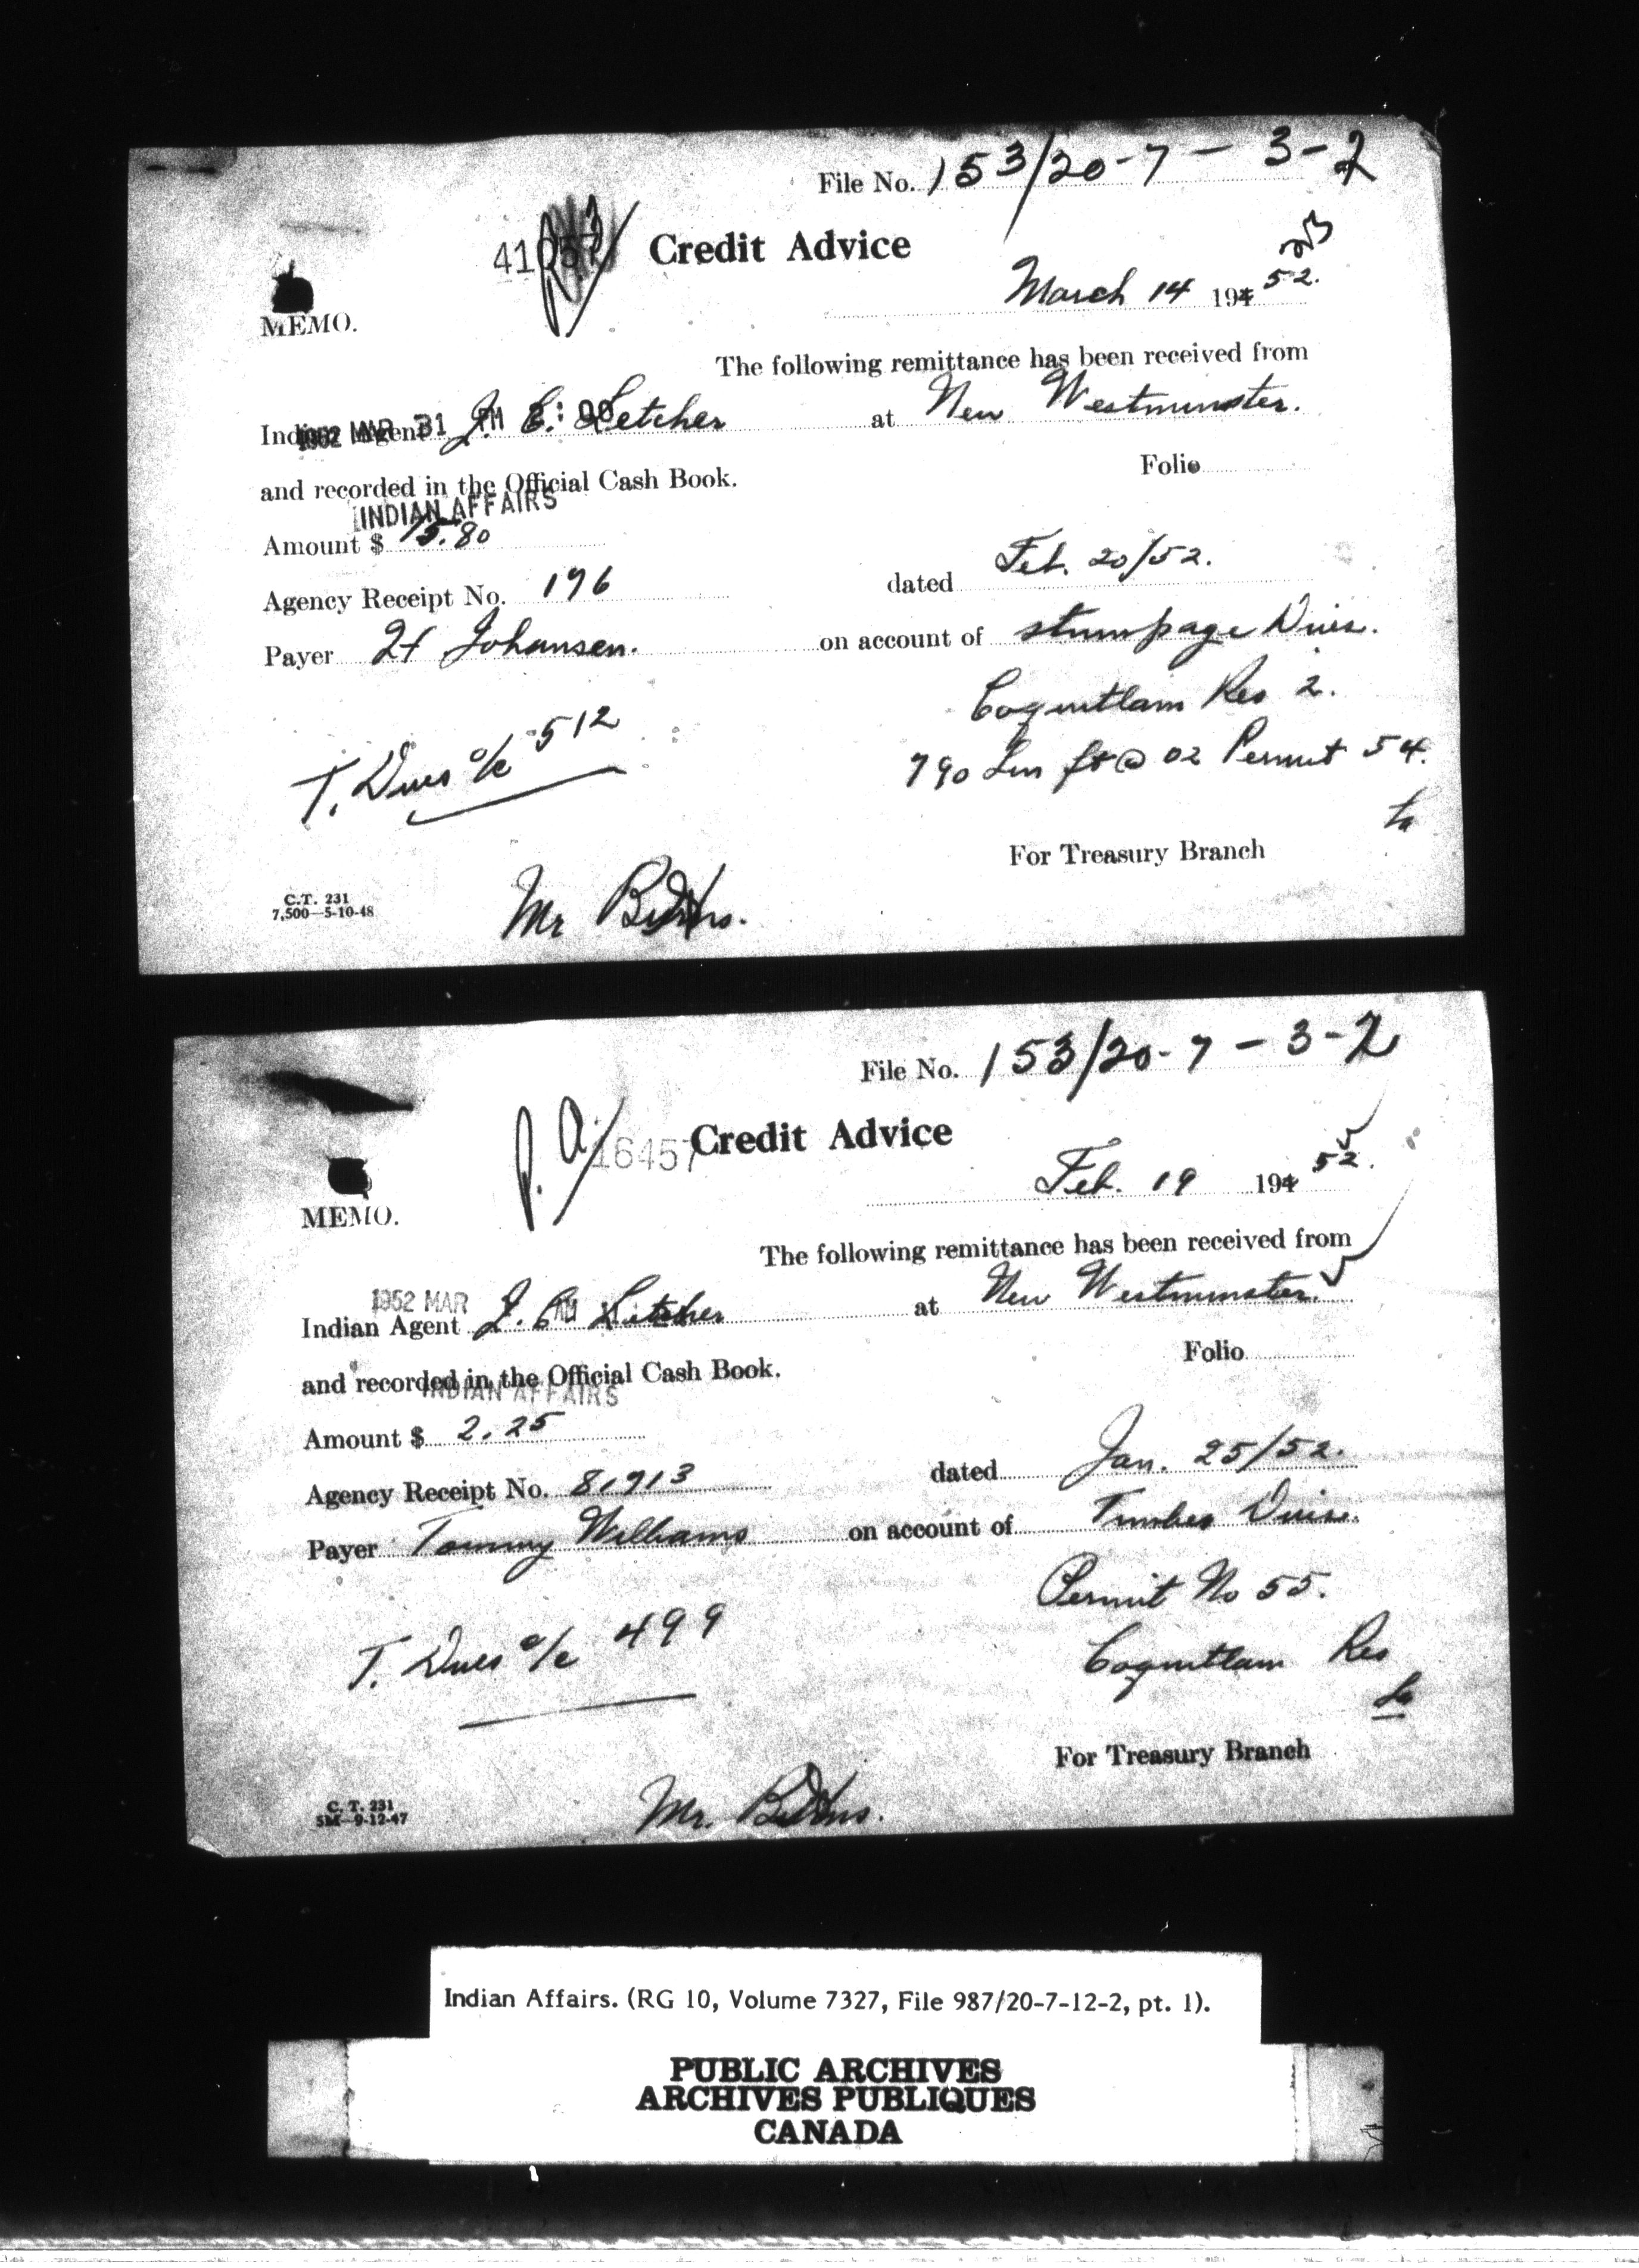 File No. 153/20-7-3-2
Credit Advice
March 14 194 52.
MEMO.
The following remittance has been received from
Indian Agent J. C. Letcher at New Westminster.
1952 MAR 31 PM
and recorded in the Official Cash Book. Folio
INDIAN AFFAIRS
Amount $ 15.80
Agency Receipt No. 196 dated Feb. 20/52.
Payer H Johansen. on account of stumpage Dues.
Coquitlam Res 2.
T. Dues a/c 512
790 Lin ft @ 02 Permit 54.
For Treasury Branch
C.T. 231
7,500—5-10-48
Mr
File No. 153/20-7-3-2
P. A. 16457
Credit Advice
Feb. 19 194 52.
MEMO.
The following remittance has been received from
1952 MAR
Indian Agent J. C. Letcher at New Westminster.
Folio
and recorded in the Official Cash Book.
INDIAN AFFAIRS
Amount $ 2.25
Agency Receipt No. 81913 dated Jan. 25/52.
Payer Tommy Williams on account of Timber Dues.
Permit No 55.
T. Dues a/c 499
Coquitlam Res
For Treasury Branch
C. T. 231
5M—9-12-47
Mr.
Indian Affairs. (RG 10, Volume 7327, File 987/20-7-12-2, pt. 1).
PUBLIC ARCHIVES
ARCHIVES PUBLIQUES
CANADA